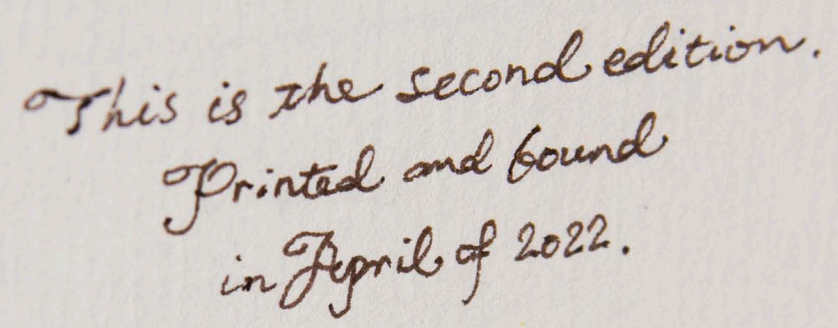 This is the second edition.
Printed and bound
in April of 2022.